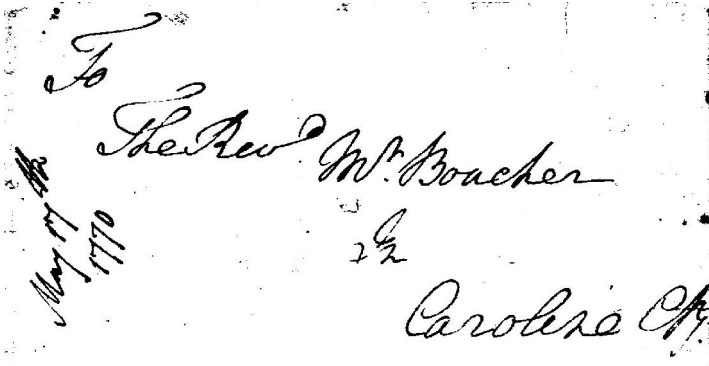 To
The Revd Mr. Boucher
in
Caroline Cty.
May 17th
1770